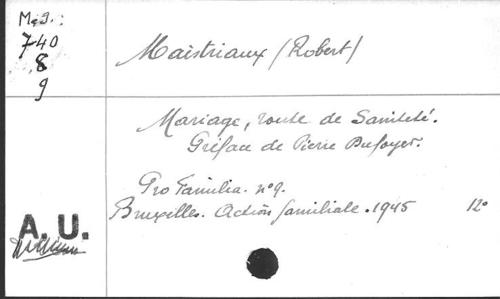 Még.:
740
8
9
Maistriaux (Robert)
Mariage, route de Sainteté.
Préface de Pierre Dufoyer.
Pro Familia. n°9.
Bruxelles. Action familiale. 1945 12°
A. U.